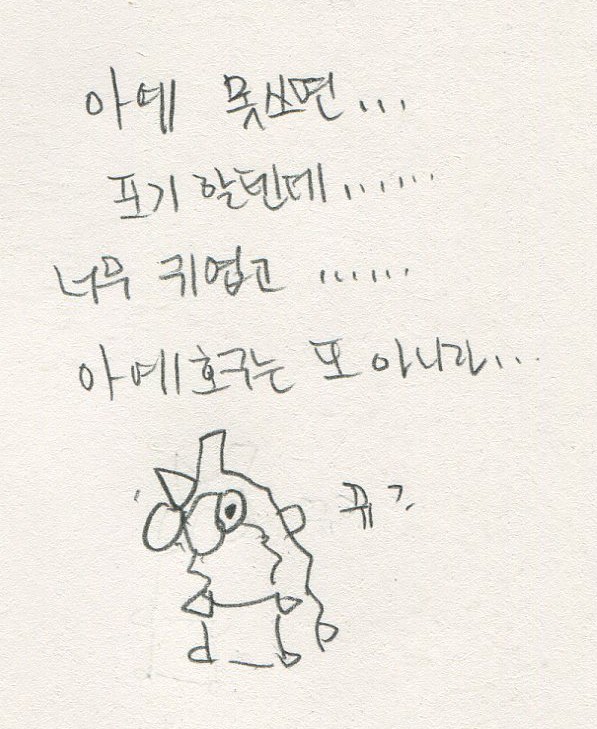 아예 못쓰면...
포기 할텐데......
너무 귀엽고 ......
아예 호구는 또 아니라...
뀨?